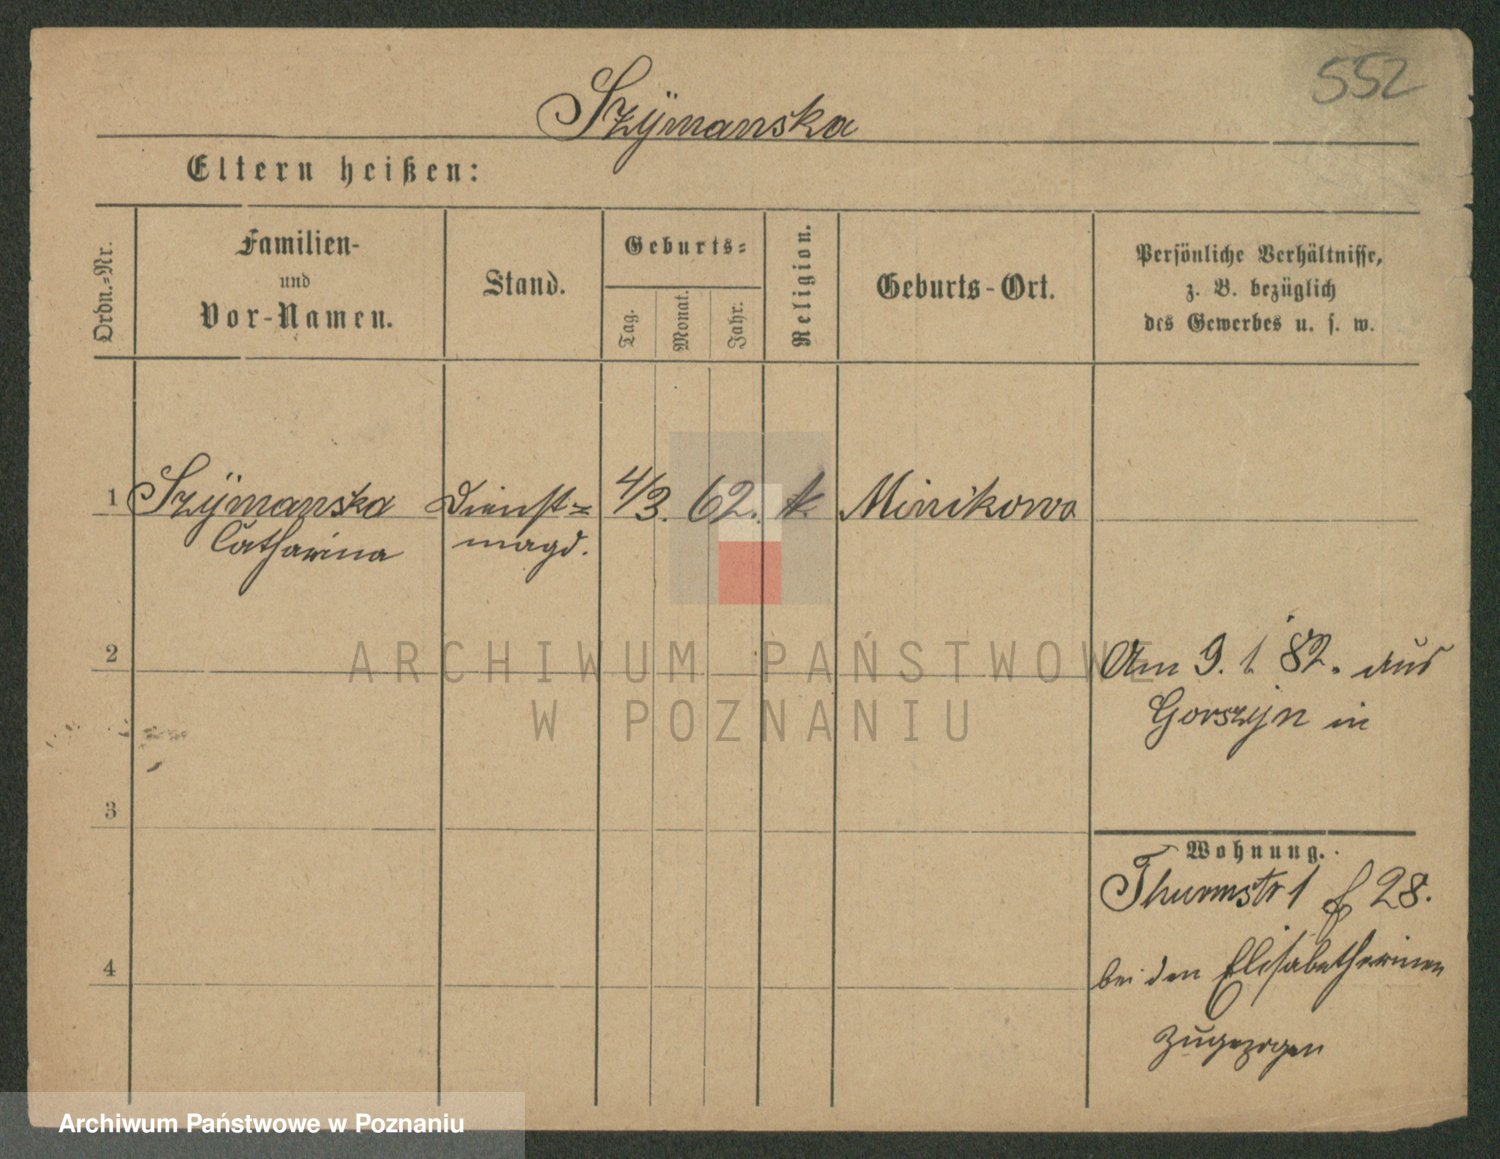 552
Szÿmanska
Eltern heißen:
Ordn.-Nr.
Familien-
und
Vor-Namen.
Stand.
Geburts-
Tag.
Monat.
Jahr.
Religion.
Geburts-Ort.
Persönliche Verhältnisse,
z. B. bezüglich
des Gewerbes u. s. w.
1 Szÿmanska Dienst- 4/3. 62. k. Minikowo
Catharina magd.
2
Am 9. 1. 82. aus
Gorszyn in
3
Wohnung.
Thurmstr 1 28.
bei den Elisabetherinnen
4
zugezogen
ARCHIWUM PAŃSTWOWE
W POZNANIU
Archiwum Państwowe w Poznaniu